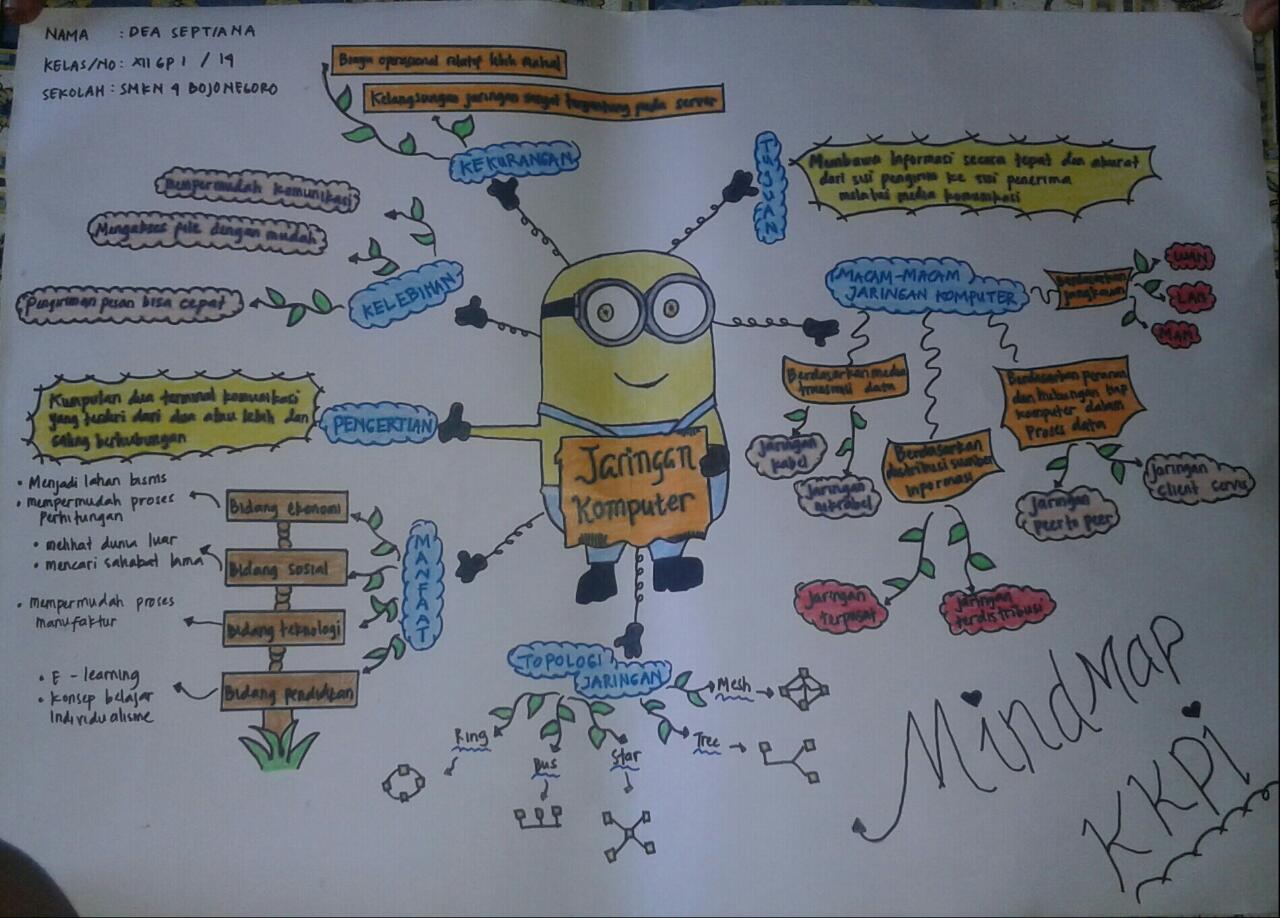 NAMA : DEA SEPTIANA
KELAS/NO : XII GP 1 / 19
SEKOLAH : SMKN 4 BOJONEGORO
Biaya operasional relatif lebih mahal
Kelangsungan jaringan sangat tergantung pada server
KEKURANGAN
mempermudah komunikasi
Mengakses file dengan mudah
Pengiriman pesan bisa cepat
KELEBIHAN
TUJUAN
Membawa Informasi secara tepat dan akurat
dari sisi pengirim ke sisi penerima
melalui media komunikasi
MACAM-MACAM
JARINGAN KOMPUTER
Berdasarkan
jangkauan
WAN
LAN
MAN
Berdasarkan media
transmisi data
Jaringan
kabel
Jaringan
nirkabel
Berdasarkan
distribusi sumber
Informasi
Jaringan
terpusat
Jaringan
terdistribusi
Berdasarkan peranan
dan hubungan tiap
komputer dalam
Proses data
Jaringan
peer to peer
Jaringan
client server
Kumpulan dua terminal komunikasi
yang terdiri dari dua atau lebih dan
saling berhubungan
PENGERTIAN
Jaringan
Komputer
MANFAAT
Bidang ekonomi
• Menjadi lahan bisnis
• mempermudah proses
Perhitungan
Bidang sosial
• melihat dunia luar
• mencari sahabat lama
Bidang teknologi
• mempermudah proses
manufaktur
Bidang pendidikan
• E - learning
• Konsep belajar
Individualisme
TOPOLOGI
JARINGAN
Ring
Bus
Star
Tree
Mesh
MindMap
KKPI